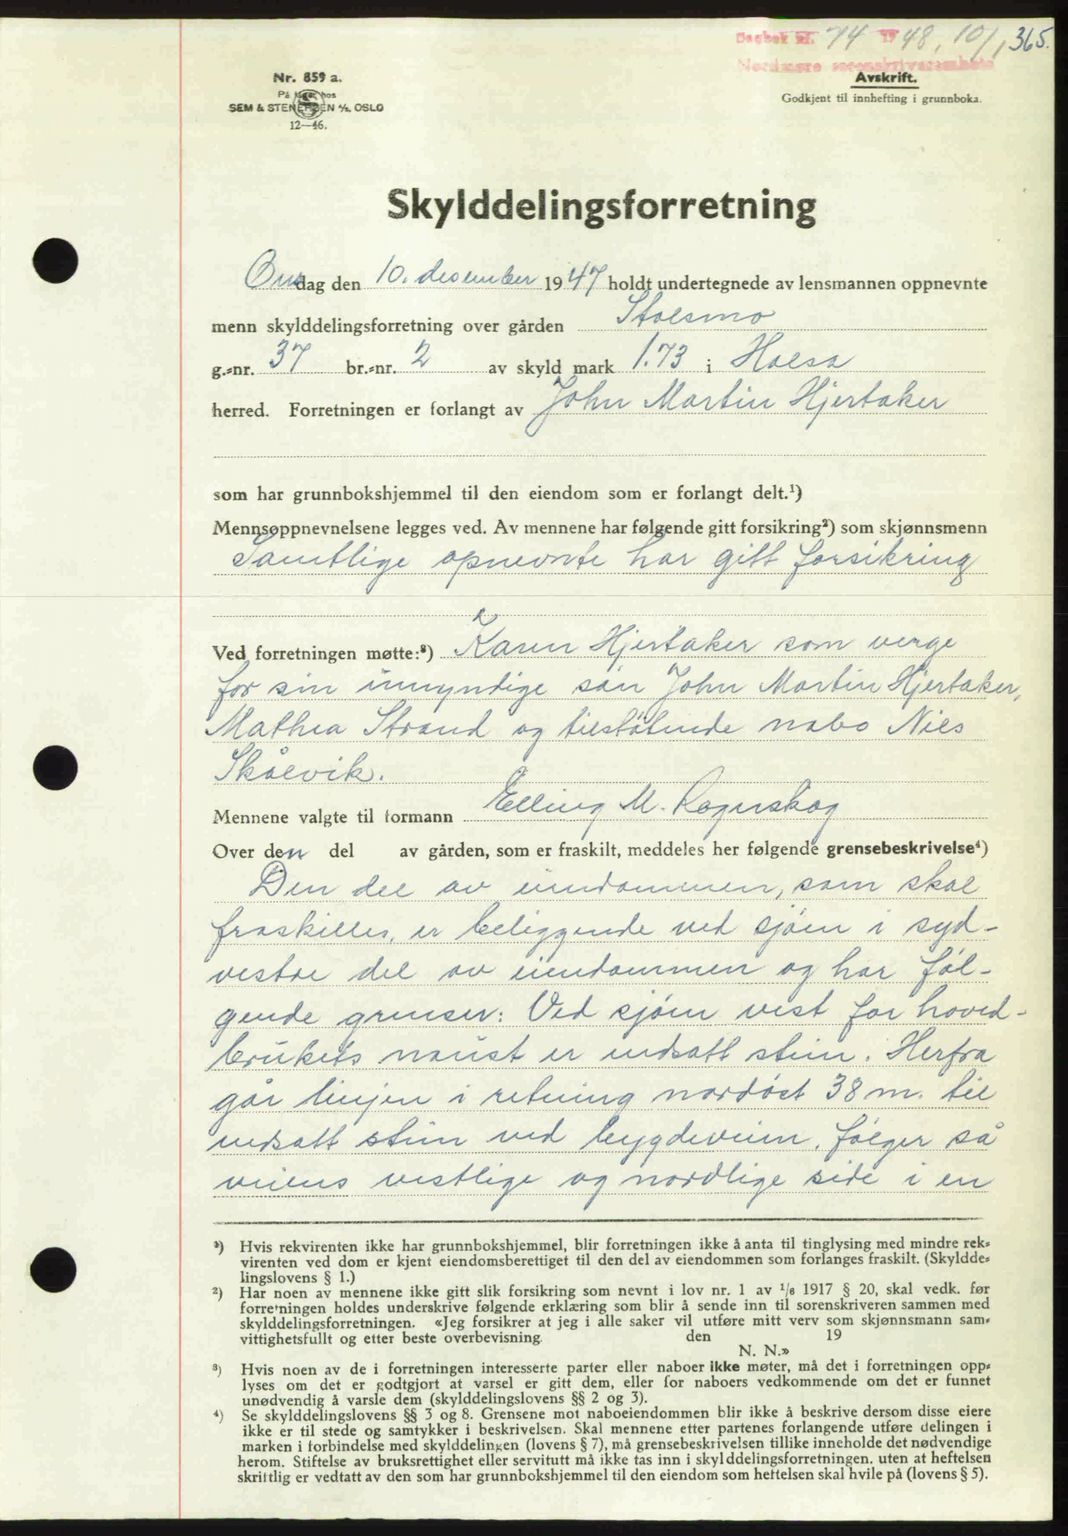 Dagbok nr. 74 1948, 10/1 365.
Nordmøre sorenskriverembete
Nr. 859 a.
På lager hos
SEM & STENERSEN A/S, OSLO
12—46.
Avskrift.
Godkjent til innhefting i grunnboka.
Skylddelingsforretning
Onsdag den 10. desember 1947 holdt undertegnede av lensmannen oppnevnte
menn skylddelingsforretning over gården Stolsmo
g.-nr. 37 br.-nr. 2 av skyld mark 1.73 i Halsa
herred. Forretningen er forlangt av John Martin Hjertaker
som har grunnbokshjemmel til den eiendom som er forlangt delt.¹)
Mennsoppnevnelsene legges ved. Av mennene har følgende gitt forsikring²) som skjønnsmenn
Samtlige opnevnte har gitt forsikring
Ved forretningen møtte:³) Karen Hjertaker som verge
for sin umyndige sön John Martin Hjertaker,
Mathea Strand og tilstøtende nabo Nils
Skålvik.
Mennene valgte til formann Elling M. Rognskog
Over den del av gården, som er fraskilt, meddeles her følgende grensebeskrivelse⁴)
Den del av eiendommen, som skal
fraskilles, er beliggende ved sjöen i syd-
vestre del av eiendommen og har föl-
gende grenser: Ved sjöen vest for hoved-
brukets naust er nedsatt stein. Herfra
går linjen i retning nordöst 38 m. til
nedsatt stein ved bygdeveien, fölger så
veiens vestlige og nordlige side i en
¹) Hvis rekvirenten ikke har grunnbokshjemmel, blir forretningen ikke å anta til tinglysing med mindre rek-
virenten ved dom er kjent eiendomsberettiget til den del av eiendommen som forlanges fraskilt. (Skyldde-
lingslovens § 1.)
²) Har noen av mennene ikke gitt slik forsikring som nevnt i lov nr. 1 av 1/6 1917 § 20, skal vedk. før
forretningen holdes underskrive følgende erklæring som blir å sende inn til sorenskriveren sammen med
skylddelingsforretningen. «Jeg forsikrer at jeg i alle saker vil utføre mitt verv som skjønnsmann sam-
vittighetsfullt og etter beste overbevisning. den 19
N. N.»
³) Hvis noen av de i forretningen interesserte parter eller naboer ikke møter, må det i forretningen opp-
lyses om det er godtgjort at varsel er gitt dem, eller for naboers vedkommende om det er funnet
unødvendig å varsle dem (skylddelingslovens §§ 2 og 3).
⁴) Se skylddelingslovens §§ 3 og 8. Grensene mot naboeiendommen blir ikke å beskrive dersom disse eiere
ikke er til stede og samtykker i beskrivelsen. Skal mennene etter partenes forlangende utføre delingen i
marken i forbindelse med skylddelingen (lovens § 7), må grensebeskrivelsen tillike inneholde det nødvendige
herom. Stiftelse av bruksrettighet eller servitutt må ikke tas inn i skylddelingsforretningen, uten at heftelsen
skriftlig er vedtatt av den som har grunnbokshjemmel til den eiendom som heftelsen skal hvile på (lovens § 5).